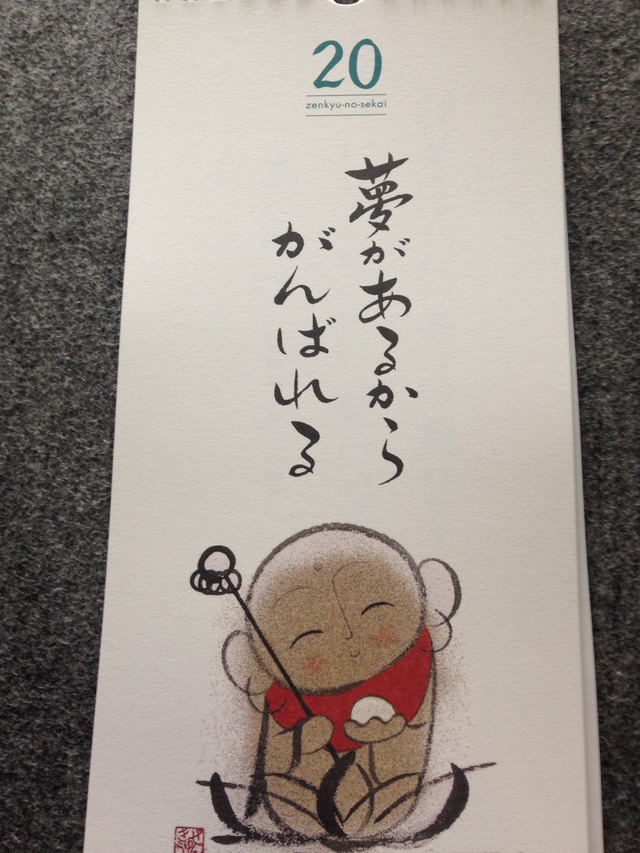 20
zenkyu-no-sekai
夢があるから
がんばれる